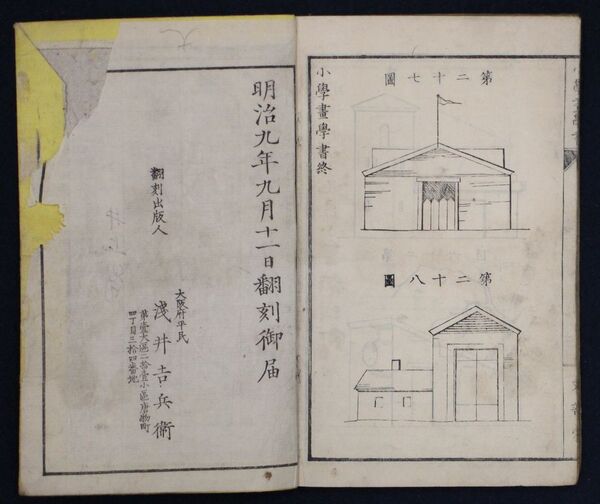 第二十七圖
第二十八圖
小學畫學書終
明治九年九月十一日翻刻御届
翻刻出版人
大阪府平民
浅井吉兵衞
第壹大區二拾壹小區唐物町
四丁目三拾四番地